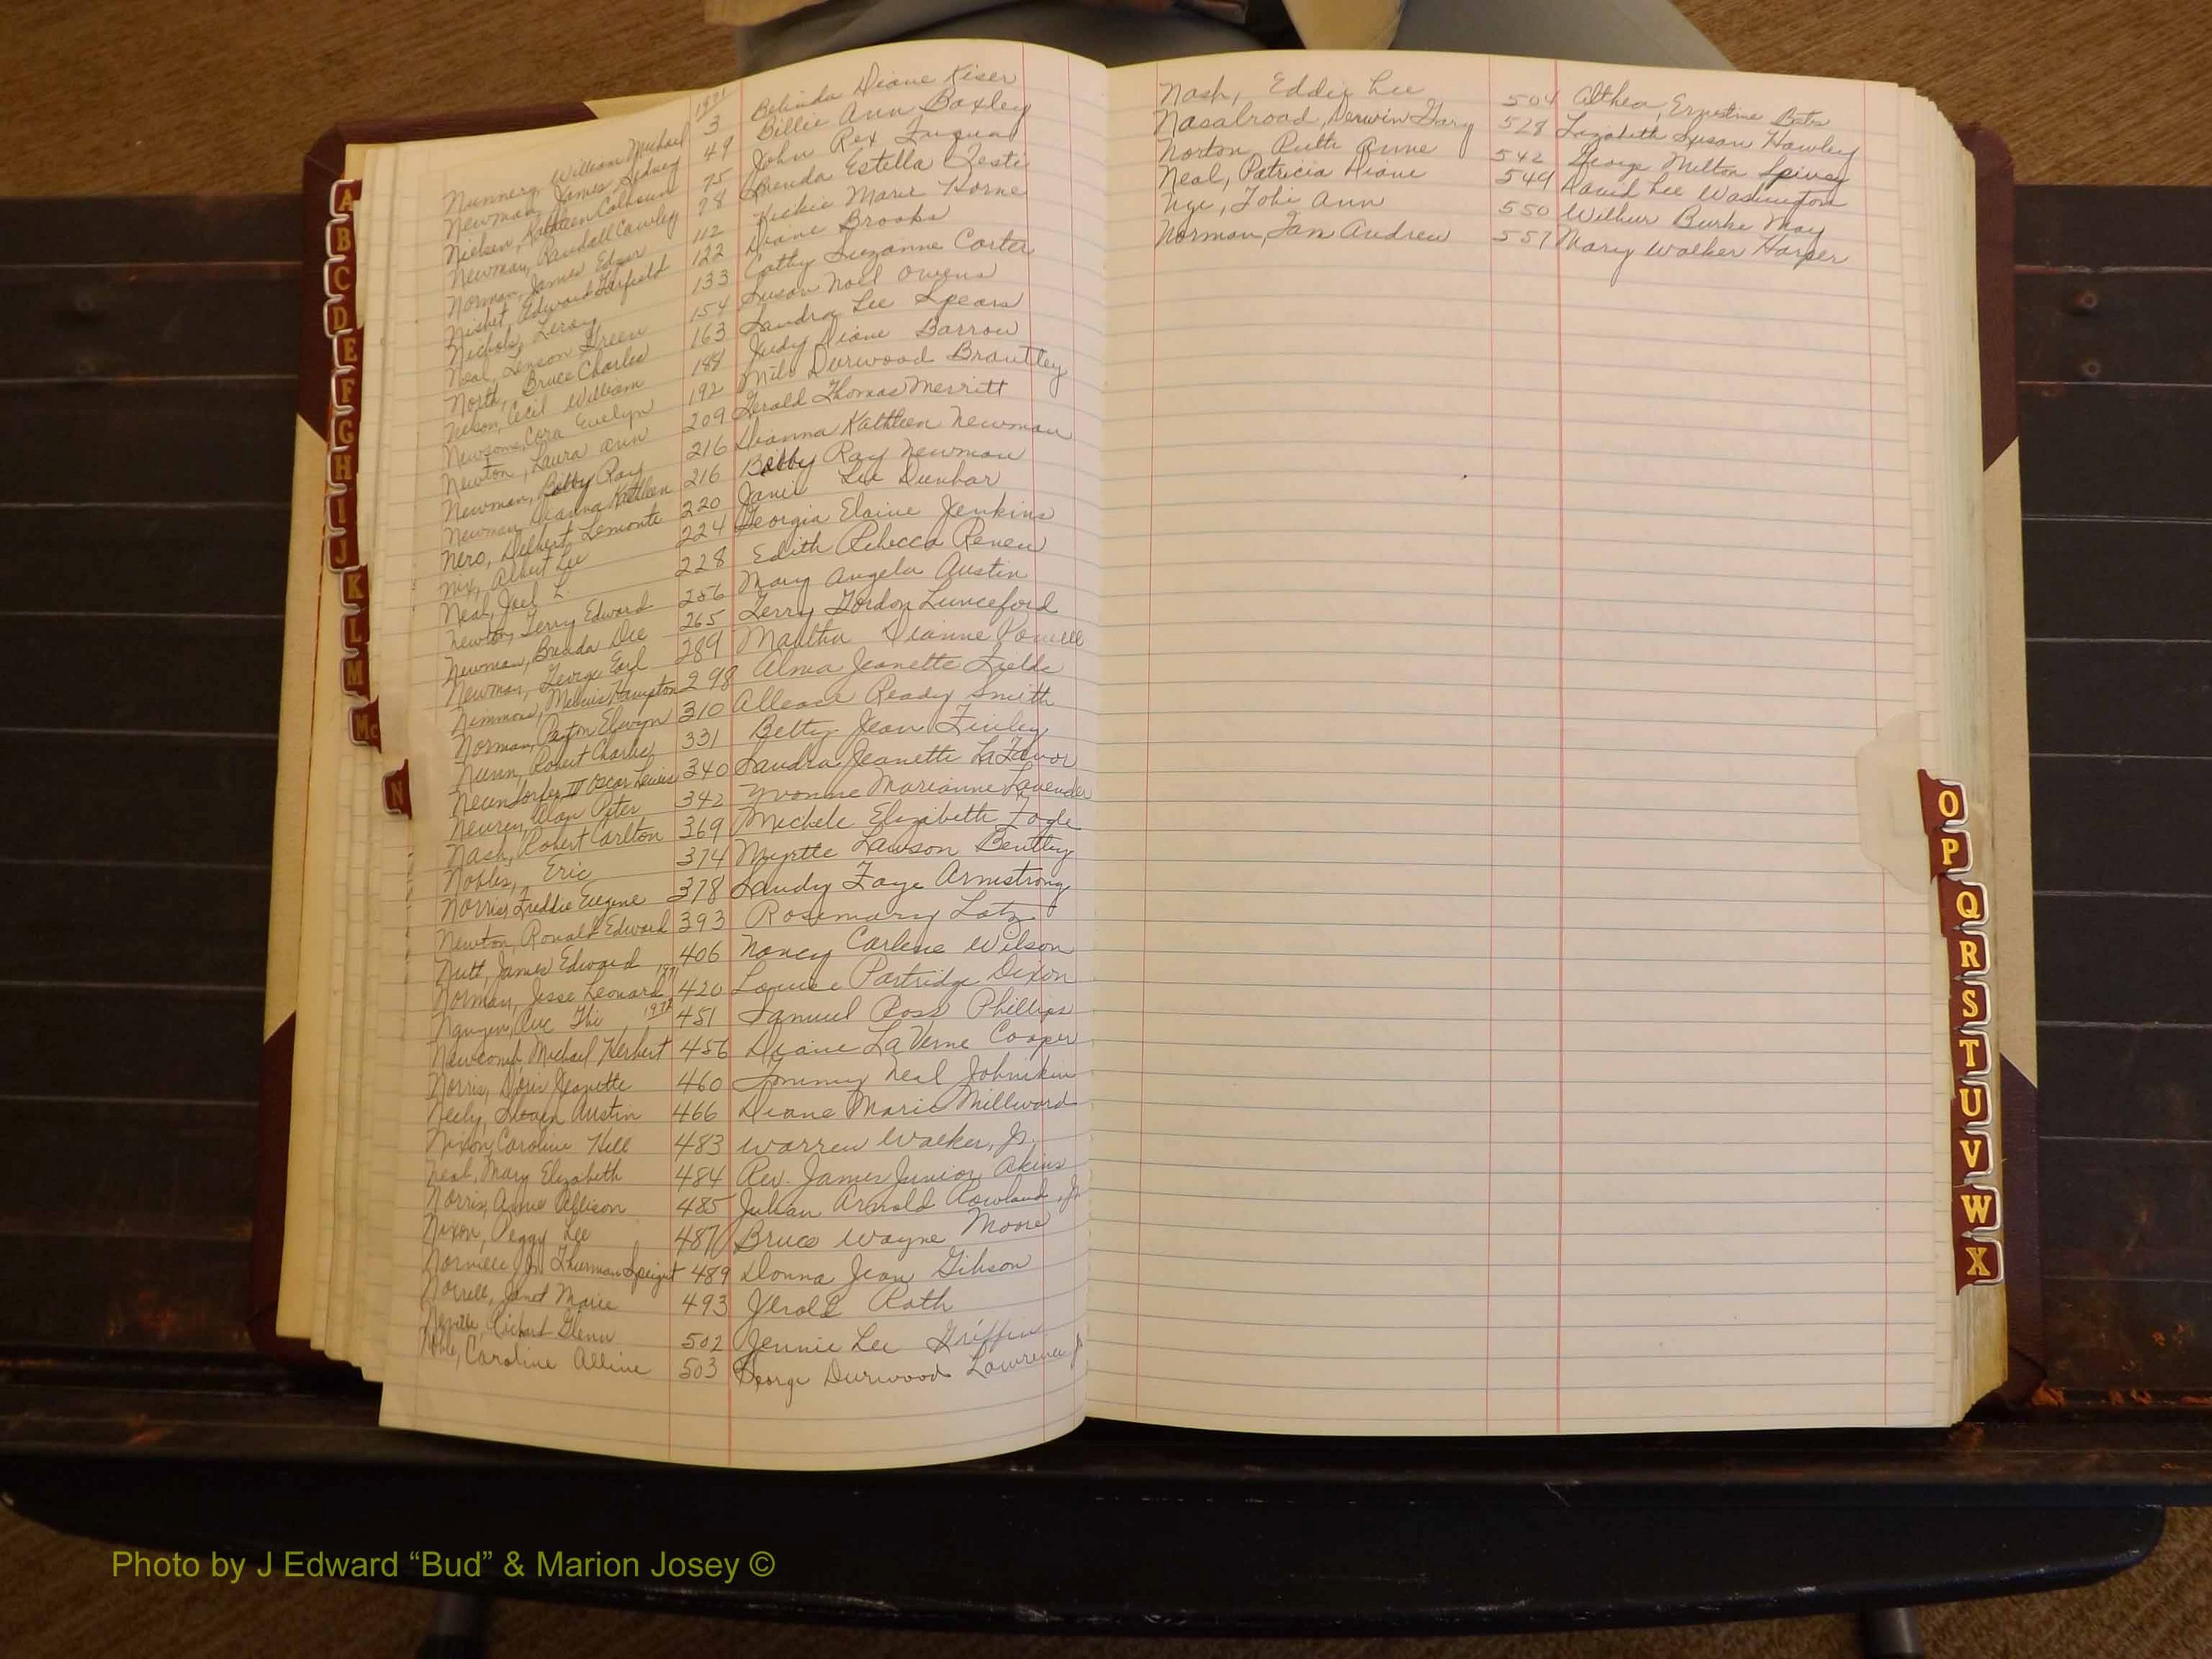 1971
Nunnery, William Michael 3 Belinda Diane Kiser
Newman, James Sidney 49 Billie Ann Baxley
Nielsen, Kathleen Calhoun 75 John Rex
Newman, Randall Cawley 78 Brenda Estella
Norman, James Edgar 112 Vickie Marie Horne
Nisbet, Edward Garfield 122 Diane Brooks
Nichols, Leroy 133 Cathy Suzanne Carter
Neal, Lenson Green 154 Susan Noel Owens
North, Bruce Charles 163 Sandra Lee Spears
Nelson, Cecil William 188 Judy Diane Barrow
Newsome, Cora Evelyn 192 Milo Durwood Brantley
Newton, Laura Ann 209 Gerald Thomas Merritt
Newman, Bobby Ray 216 Dianna Kathleen Newman
Newman, Dianna Kathleen 216 Bobby Ray Newman
Nero, Delbert Lemonte 220 Janie Lee Dunbar
Nix, Albert Lee 224 Georgia Elaine Jenkins
Neal, Joel L. 228 Edith Rebecca Renew
Newton, Terry Edward 256 Mary Angela Austin
Newman, Brenda Dee 265 Terry Gordon Lunceford
Newman, George Earl 289 Martha Dianne Powell
Nimmons, Hampton 298 Alma Jeanette Fields
Norman, Paxton Elwyn 310 Ready Smith
Nunn, Robert Charles 331 Betty Jean Finley
III Oscar Lewis 340 Sandra Jeanette LaFavor
Alan Peter 342 Yvonne Marianne Lavender
Nash, Robert Carlton 369 Michele Elizabeth Fogle
Nobles, Eric 374 Myrtle Lawson Bentley
Norris, Freddie Eugene 378 Sandy Faye Armstrong
Newton, Ronald Edward 393 Rosemary Lotz
Nutt, James Edward 406 Nancy Carlene Wilson
Norman, Jesse Leonard 1971 420 Louise Partridge Dixon
Thi 1972 451 Samuel Ross Phillips
Newcomb, Michael Herbert 456 Diane LaVerne Cooper
Norris, Doris Jeanette 460 Tommy Neal Johnikin
Neely, Steven Austin 466 Diane Marie Millward
Nixon, Caroline Hill 483 Warren Walker, Jr.
Neal, Mary Elizabeth 484 Rev. James Junior Akins
Norris, Annie Allison 485 Julian Arnold Rowland, Jr
Nixon, Peggy Lee 487 Bruce Wayne Moore
Norville Jr., Thurman Speight 489 Donna Jean Gibson
Norrell, Janet Marie 493 Jerold Roth
Neville, Richard Glenn 502 Jennie Lee Griffin
Noble, Caroline Alline 503 George Durwood Lawrence Jr
Nash, Eddie Lee 504 Althea, Ernestine Bates
Nasalroad, Derwin Gary 528 Lizabeth Susan Hawley
Norton, Ruth Anne 542 George Milton Spivey
Neal, Patricia Diane 549 David Lee Washington
Nye, Tobi Ann 550 Wilbur Burke May
Norman, Ian Andrew 557 Mary Walker Harper
A
B
C
D
E
F
G
H
I
J
K
L
M
Mc
N
O
P
Q
R
S
T
U
V
W
X
Photo by J Edward “Bud” & Marion Josey ©